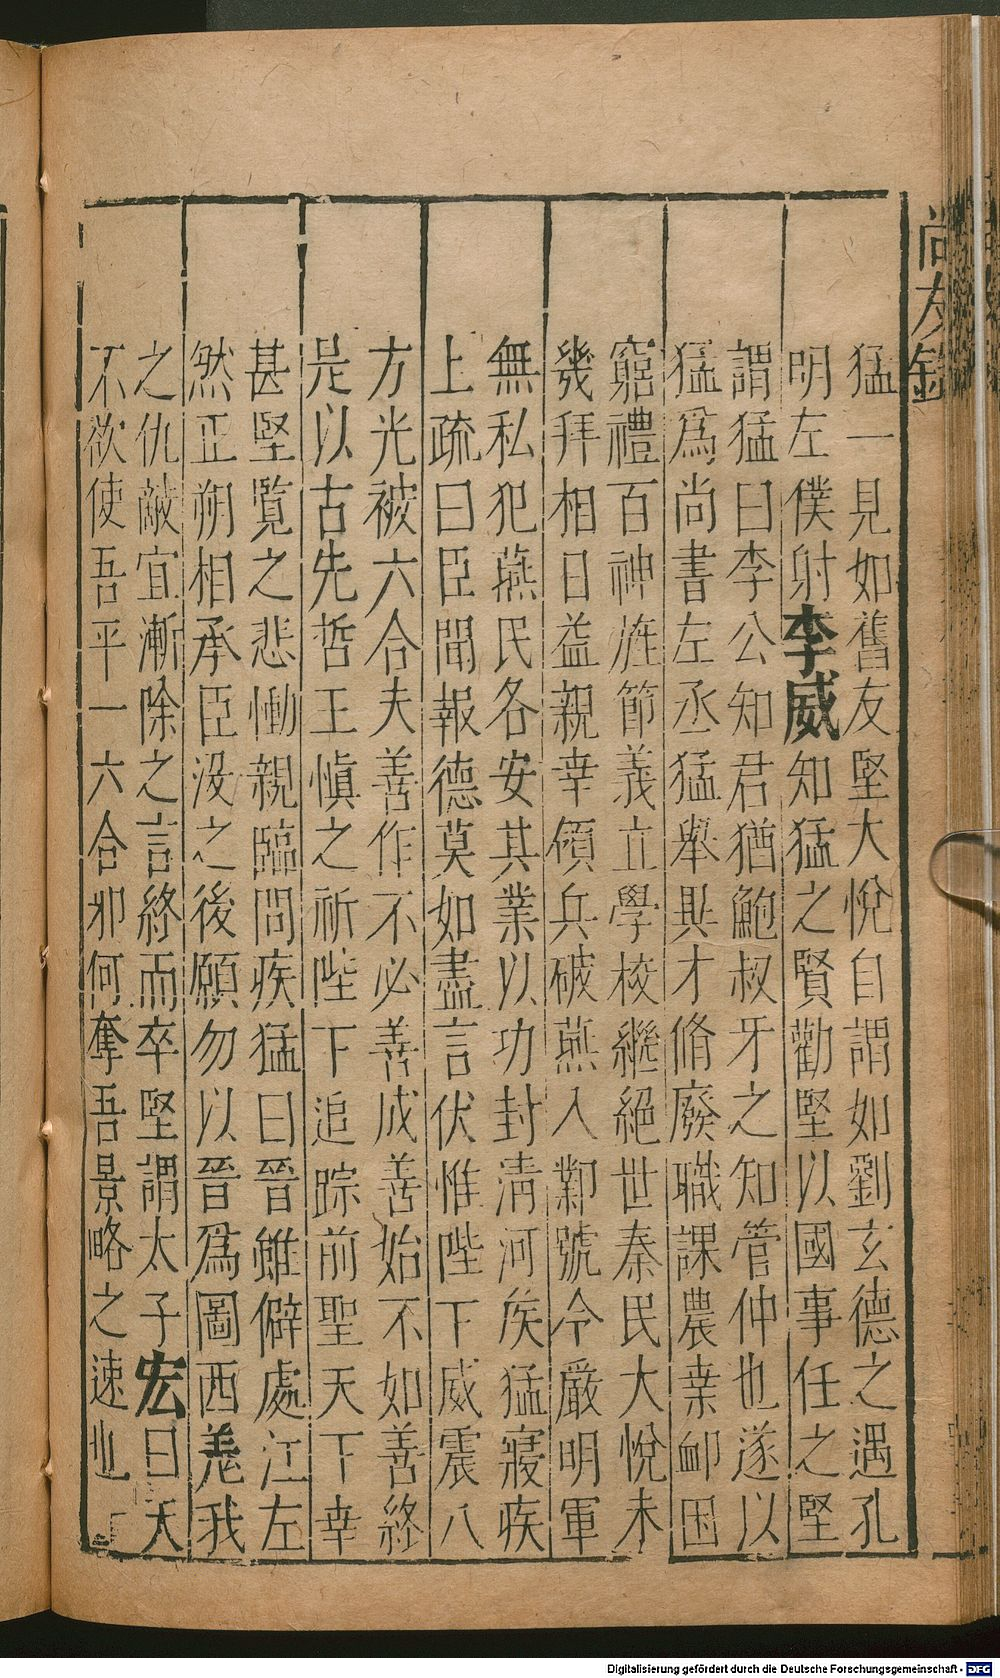 尚友錄
猛一見如舊友堅大悅自謂如劉玄德之遇孔
明左僕射李威知猛之賢勸堅以國事任之堅
謂猛曰李公知君猶鮑叔牙之知管仲也遂以
猛爲尚書左丞猛舉異才脩廢職課農桒卹困
窮禮百神旌節義立學校繼絕世秦民大悅未
幾拜相日益親幸領兵破燕入鄴號令嚴明軍
無私犯燕民各安其業以功封淸河侯猛寢疾
上疏曰臣聞報德莫如盡言伏惟陛下威震八
方光被六合夫善作不必善成善始不如善終
是以古先哲王愼之祈陛下追踪前聖天下幸
甚堅覧之悲慟親臨問疾猛曰晉雖僻處江左
然正朔相承臣没之後願勿以晉爲圖西羌我
之仇敵宜漸除之言終而卒堅謂太子宏曰天
不欲使吾平一六合邪何奪吾景略之速也
Digitalisierung gefördert durch die Deutsche Forschungsgemeinschaft - DFG